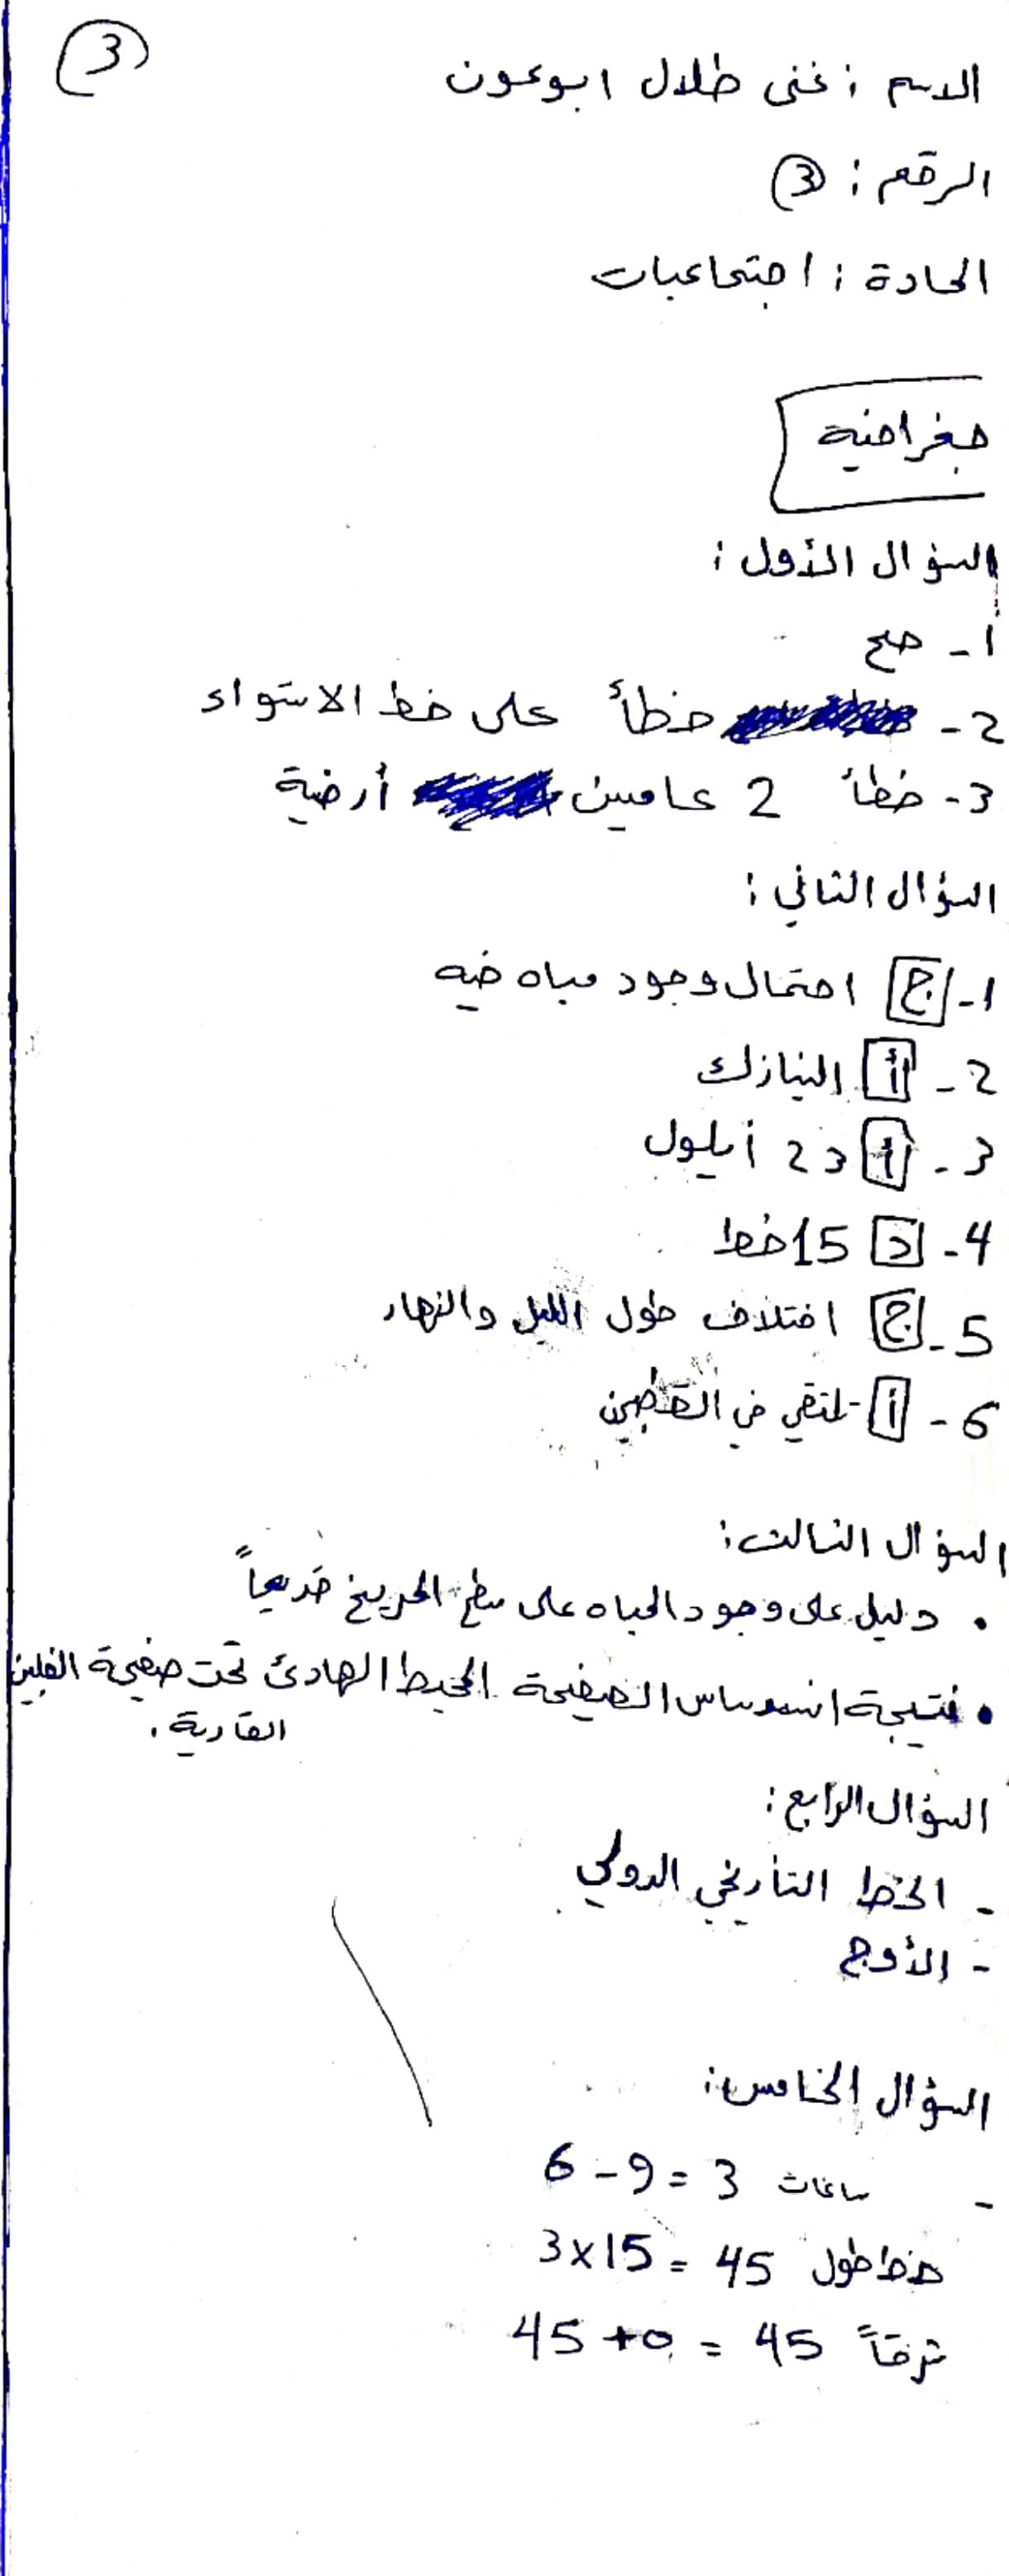 3
الاسم : غنى طلال ابو عون
الرقم : 3
المادة : اجتماعيات
جغرافية
السؤال الأول :
1- صح
2- خطأ على خط الاستواء
3- خطأ 2 عامين أرضية
السؤال الثاني :
1- ج احتمال وجود مياه فيه
2- أ النيازك
3- أ 23 أيلول
4- د 15 خط
5- ج اختلاف طول الليل والنهار
6- أ تلتقي في القطبين
السؤال الثالث :
• دليل على وجود المياه على سطح المريخ قديماً
• نتيجة اندساس الصفيحة المحيط الهادئ تحت صفيحة الفلبين
القارية .
السؤال الرابع :
- الخط التأريخي الدولي
- الأوج
السؤال الخامس :
- 6 - 9 = 3 ساعات
3x15 = 45 خط طول
45 + 0 = 45 شرقاً